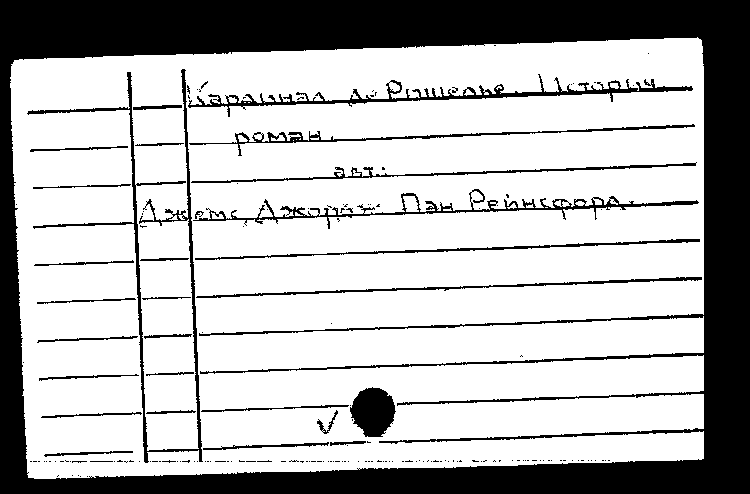 Кардинал де Ришелье. Историч.
роман.
авт.:
Джемс, Джордж Пэн Рейнсфорд.